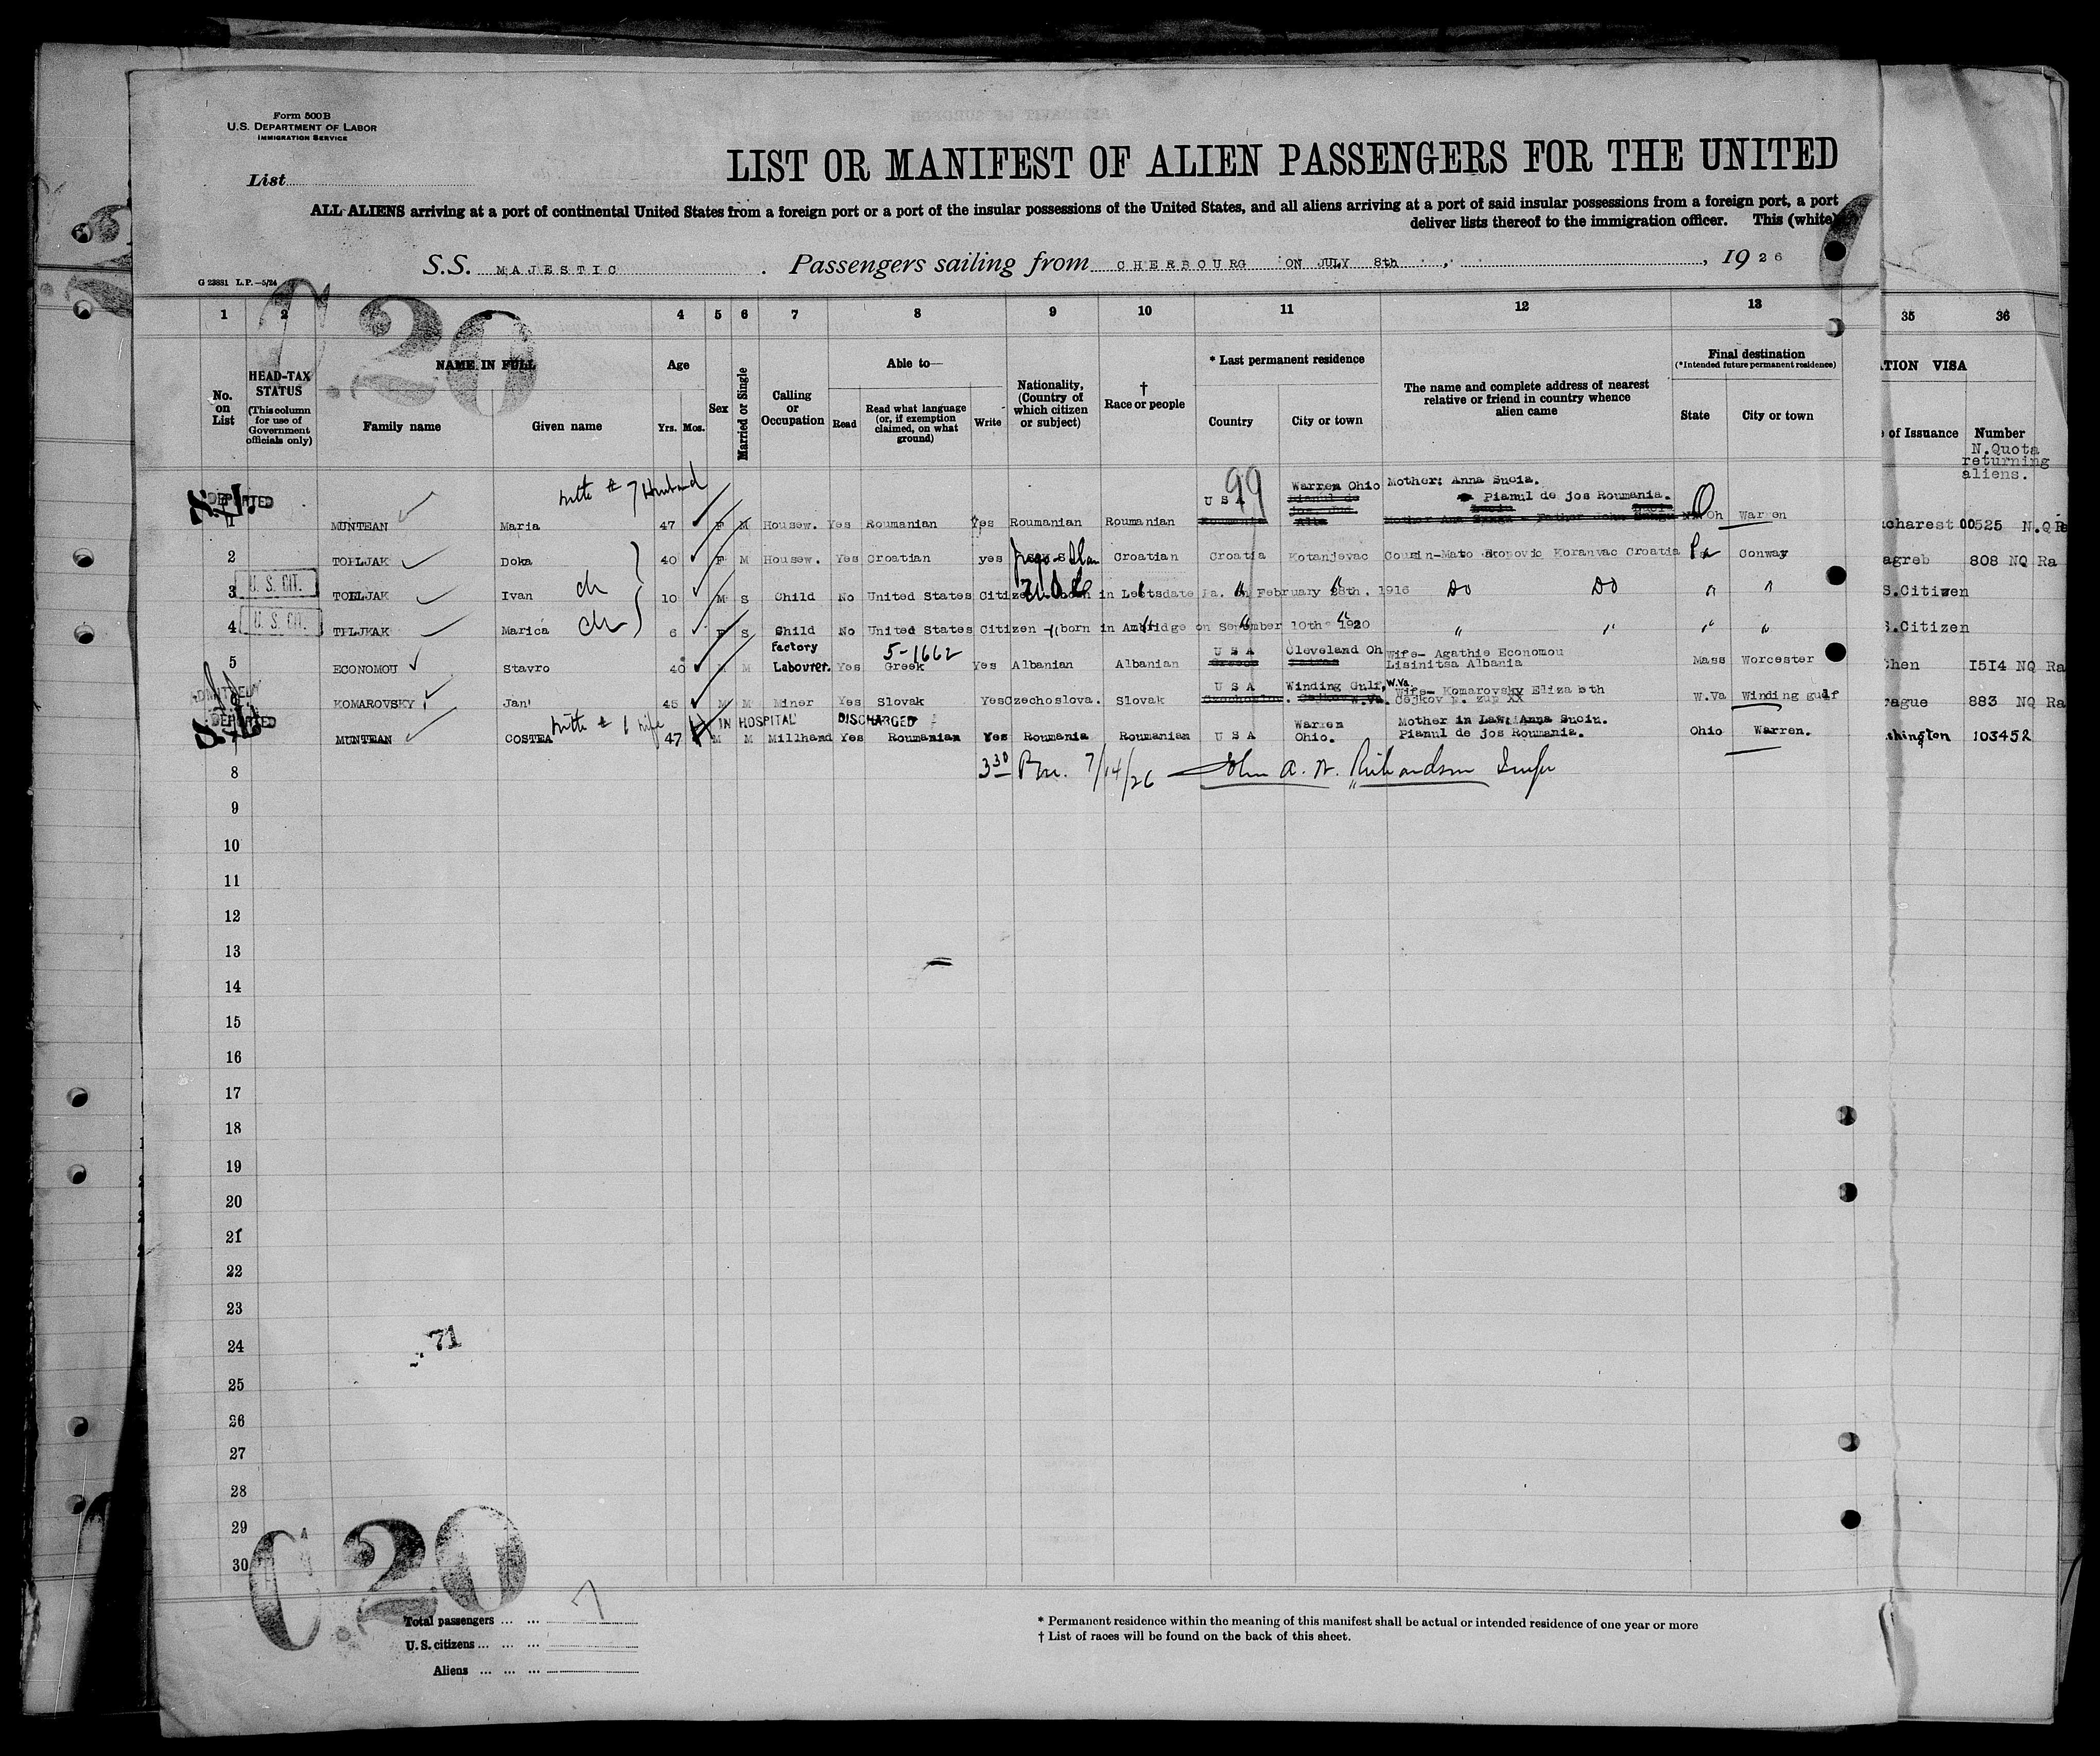 Form 500B
U.S. DEPARTMENT OF LABOR
IMMIGRATION SERVICE
List
LIST OR MANIFEST OF ALIEN PASSENGERS FOR THE UNITED
ALL ALIENS arriving at a port of continental United States from a foreign port or a port of the insular possessions of the United States, and all aliens arriving at a port of said insular possessions from a foreign port, a port
deliver lists thereof to the immigration officer. This (white)
S.S. MAJESTIC. Passengers sailing from CHERBOURG ON JULY 8th, 1926
G 23831 L.P.—5/24
C.20
1 2 3 4 5 6 7 8 9 10 11 12 13 35 36
No. on List
HEAD-TAX STATUS (This column for use of Government officials only)
NAME IN FULL
Family name Given name
Age Yrs. Mos.
Sex
Married or Single
Calling or Occupation
Able to— Read Read what language (or, if exemption claimed, on what ground) Write
Nationality, (Country of which citizen or subject)
† Race or people
* Last permanent residence Country City or town
The name and complete address of nearest relative or friend in country whence alien came
Final destination (*Intended future permanent residence) State City or town
ATION VISA
of Issuance Number
N.Quota
returning
aliens.
with # 7 Husband 99 Warren Ohio Mother: Anna Suciu.
U S A Pianul de jos Roumania.
MUNTEAN Maria 47 F M Housew. Yes Roumanian Yes Roumanian Roumanian Oh Warren ucharest 00525 N.Q Ra
2 TOLJAK Doka 40 F M Housew. Yes Croatian yes Croatian Croatia Kotanjevac Cousin-Mato Skopovic Koranvac Croatia Pa Conway agreb 808 NQ Ra
3 U. S. CIT. TOLLJAK Ivan ch 10 M S Child No United States Citizen born in Leetsdate Pa. on February 28th. 1916 Do Do " " S.Citizen
4 U. S. CIT. TILJKAK Marica ch 6 F S Child No United States Citizen - born in Ambridge on September 10th 1920 " " " " S.Citizen
factory 5-1662 U S A Cleveland Oh Wife- Agathie Economou
5 ECONOMOU Stavro 40 M M Labourer. Yes Greek Yes Albanian Albanian Lisinitsa Albania Mass Worcester then 1514 NQ Ra
ADMITTED U S A Winding Gulf, W.Va. Wife- Komarovsky Elizabeth
6 KOMAROVSKY Jan 45 M M Miner Yes Slovak Yes Czechoslova. Slovak Cejkov p. zup XX W.Va Winding gulf rague 883 NQ Ra
DEPARTED with # 1 wife IN HOSPITAL DISCHARGED Warren Mother in Law; Anna Suciu.
7 MUNTEAN COSTEA 47 M M Millhand Yes Roumanian Yes Roumania Roumanian U S A Ohio. Pianul de jos Roumania. Ohio Warren. shington 103452
8 3 30 P.m. 7/14/26 John A. W. Richardson Insp
9
10
11
12
13
14
15
16
17
18
19
20
21
22
23
24
71
25
26
27
28
29
30
C.20
Total passengers 7
U. S. citizens
Aliens
* Permanent residence within the meaning of this manifest shall be actual or intended residence of one year or more
† List of races will be found on the back of this sheet.